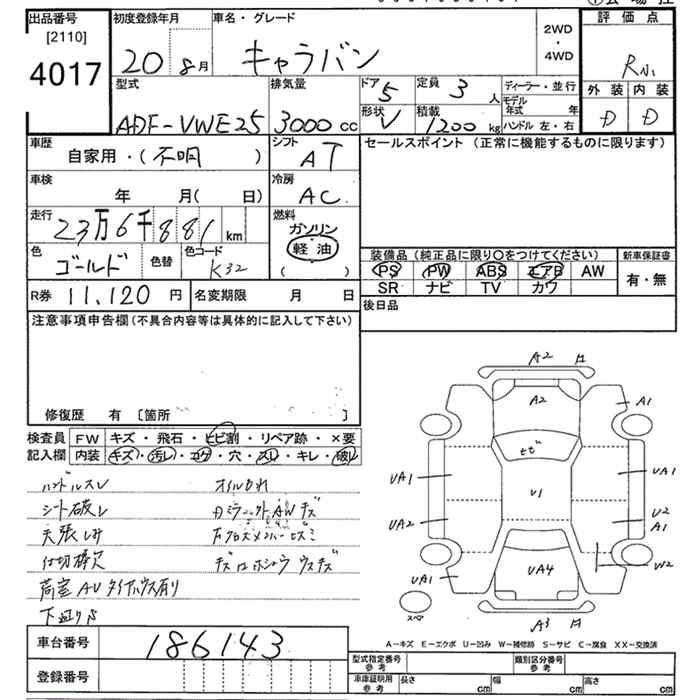 出品番号
[2110]
4017
初度登録年月
20 8月
車名・グレード
キャラバン
2WD
・
4WD
評価点
R小
外装 内装
D D
型式
ADF-VWE25
排気量
3000cc
ドア 5
定員 3人
ディーラー・並行
モデル年式 年
形状 V
積載 1200kg
ハンドル 左・右
車歴
自家用・(不明)
シフト
AT
セールスポイント (正常に機能するものに限ります)
車検
年 月(日)
冷房
AC
走行
23万6千881km
燃料
ガソリン
軽油
( )
色
ゴールド
色替
色コード
K32
装備品 (純正品に限り○をつけてください)
新車保証書
PS PW ABS エアB AW
有・無
SR ナビ TV カワ
R券 11,120円
名変期限 月 日
後日品
注意事項申告欄 (不具合内容等は具体的に記入して下さい)
修復歴 有 〔箇所 〕
検査員
記入欄
FW キズ・飛石・ヒビ割・リペア跡・×要
内装 キズ・汚レ・コゲ・穴・スレ・キレ・破レ
ハンドルスレ
シート破レ
天張しみ
仕切棒欠
荷室AUタイヤハウス有り
オイルもれ
A2
A2
A1
ヒビ
UA1
U1
UA1
UA2
U2
A1
UA1
UA4
W2
A3
スペア
A-キズ E-エクボ U-凹み W-補修跡 S-サビ C-腐食 XX-交換済
車台番号
186143
登録番号
型式指定番号
参考
類別区分番号
参考
車庫証明用
参考
長さ cm
幅 cm
高さ cm